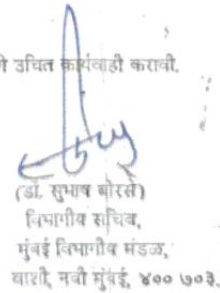 ी उचित कार्यवाही करावी.
(डॉ. सुभाष बोरसे)
विभागीय सचिव,
मुंबई विभागीय मंडळ,
वाशी, नवी मुंबई, ४०० ७०३.